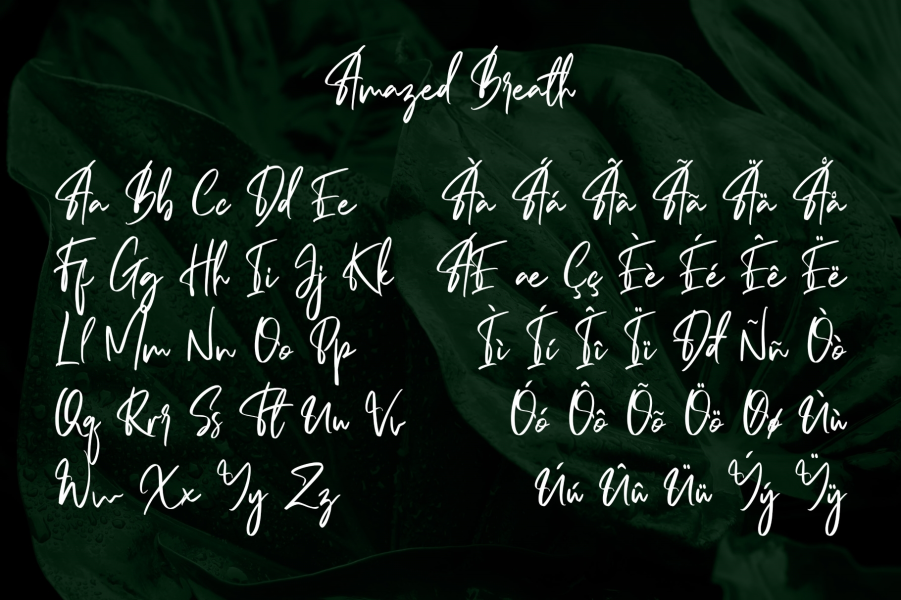 Amazed Breath
Aa Bb Cc Dd Ee
Ff Gg Hh Ii Jj Kk
Ll Mm Nn Oo Pp
Qq Rr Ss Tt Uu Vv
Ww Xx Yy Zz
Àà Áá Ââ Ãã Ää Åå
Æ æ Çç Èè Éé Êê Ëë
Ìì Íí Îî Ïï Đđ Ññ Òò
Óó Ôô Õõ Öö Øø Ùù
Úú Ûû Üü Ýý Ÿÿ